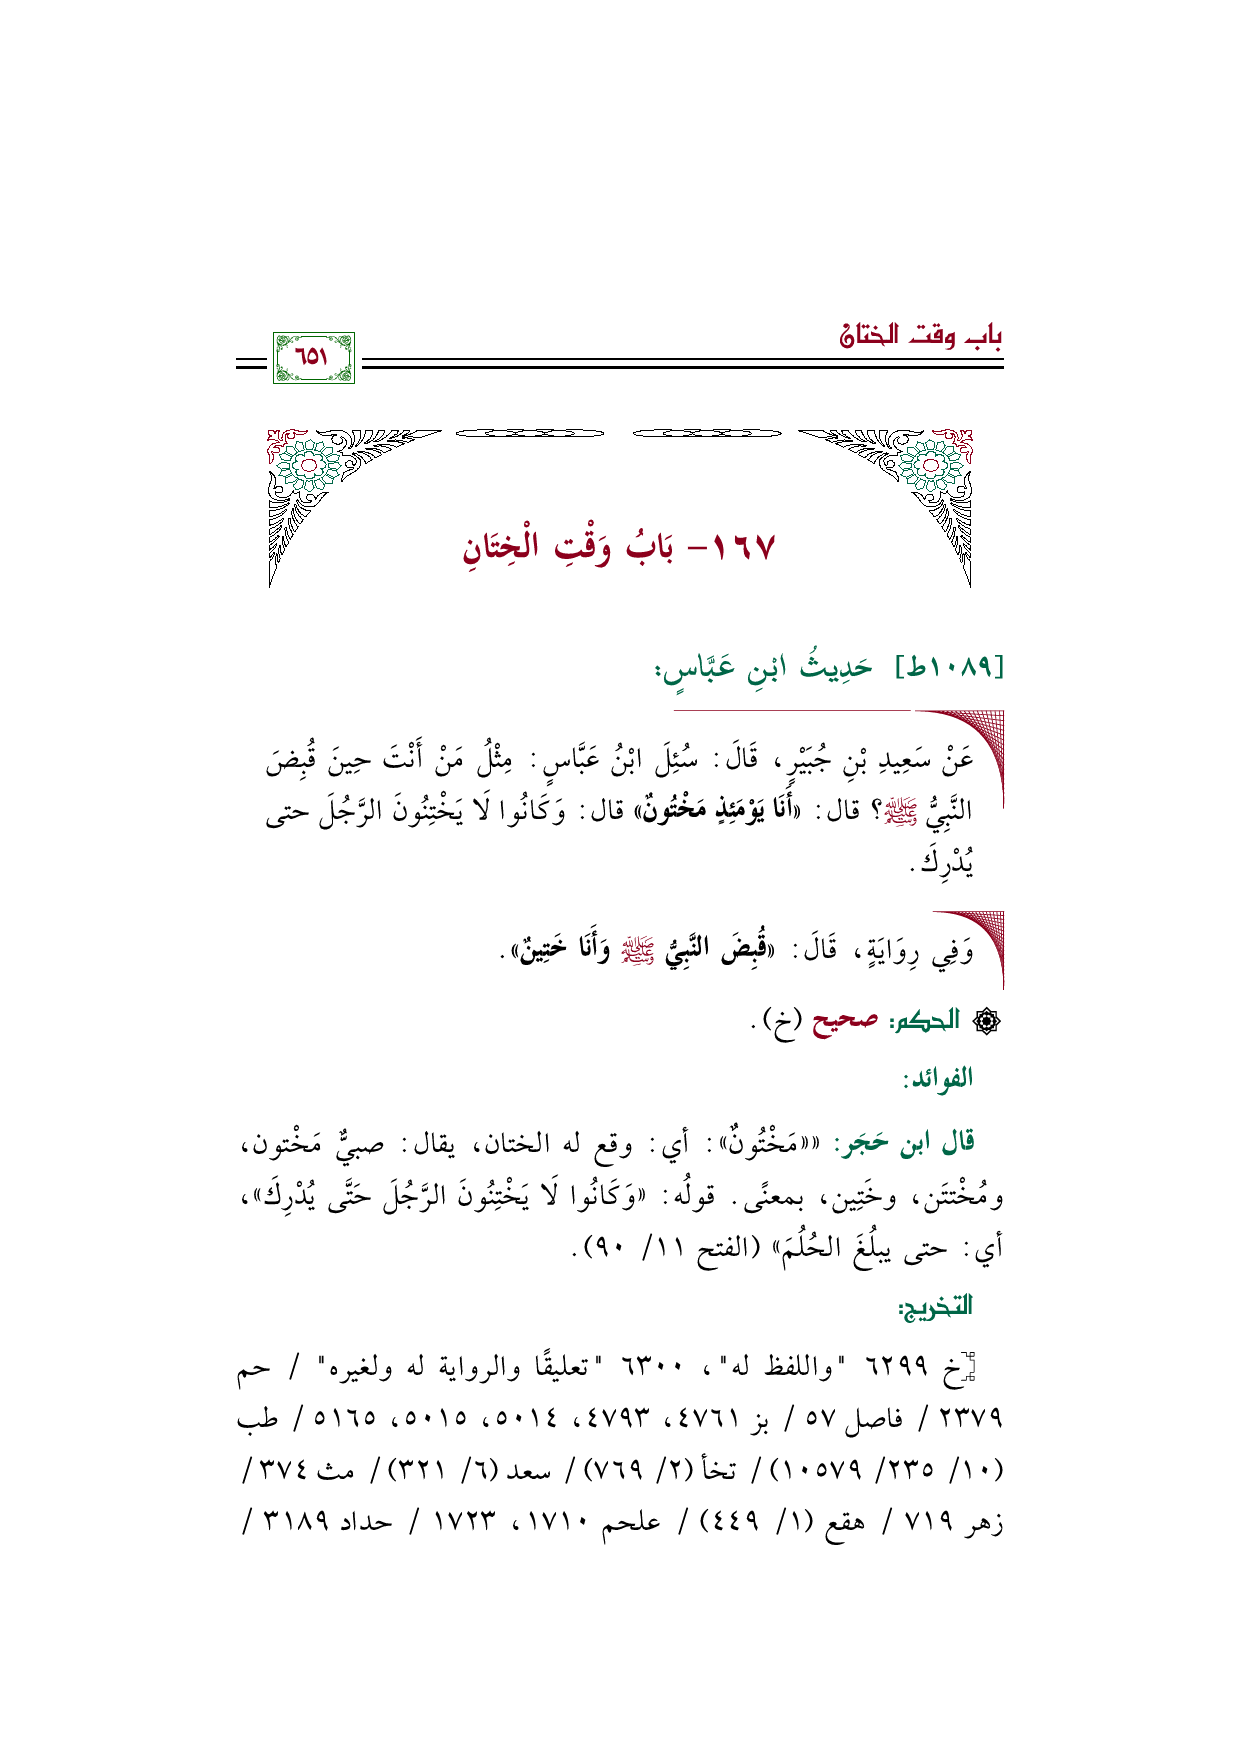 باب وقت الختان
٦٥١
١٦٧- بَابُ وَقْتِ الْخِتَانِ
[١٠٨٩ط] حَدِيثُ ابْنِ عَبَّاسٍ:
عَنْ سَعِيدِ بْنِ جُبَيْرٍ، قَالَ: سُئِلَ ابْنُ عَبَّاسٍ: مِثْلُ مَنْ أَنْتَ حِينَ قُبِضَ
النَّبِيُّ ﷺ؟ قال: «أَنَا يَوْمَئِذٍ مَخْتُونٌ» قال: وَكَانُوا لَا يَخْتِنُونَ الرَّجُلَ حتى
يُدْرِكَ.
وَفِي رِوَايَةٍ، قَالَ: «قُبِضَ النَّبِيُّ ﷺ وَأَنَا خَتِينٌ».
الحكم: صحيح (خ).
الفوائد:
قال ابن حَجَر: ««مَخْتُونٌ»: أي: وقع له الختان، يقال: صبيٌّ مَخْتون،
ومُخْتتَن، وخَتِين، بمعنًى. قولُه: «وَكَانُوا لَا يَخْتِنُونَ الرَّجُلَ حَتَّى يُدْرِكَ»،
أي: حتى يبلُغَ الحُلُمَ» (الفتح ١١/ ٩٠).
التخريج:
[خ ٦٢٩٩ "واللفظ له"، ٦٣٠٠ "تعليقًا والرواية له ولغيره" / حم
٢٣٧٩ / فاصل ٥٧ / بز ٤٧٦١، ٤٧٩٣، ٥٠١٤، ٥٠١٥، ٥١٦٥ / طب
(١٠/ ٢٣٥/ ١٠٥٧٩) / تخأ (٢/ ٧٦٩) / سعد (٦/ ٣٢١) / مث ٣٧٤ /
زهر ٧١٩ / هقع (١/ ٤٤٩) / علحم ١٧١٠، ١٧٢٣ / حداد ٣١٨٩ /